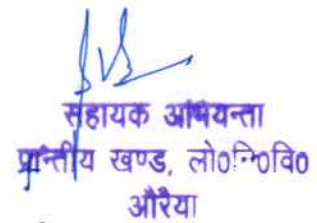 सहायक अभियन्ता
प्रान्तीय खण्ड, लो०नि०वि०
औरैया